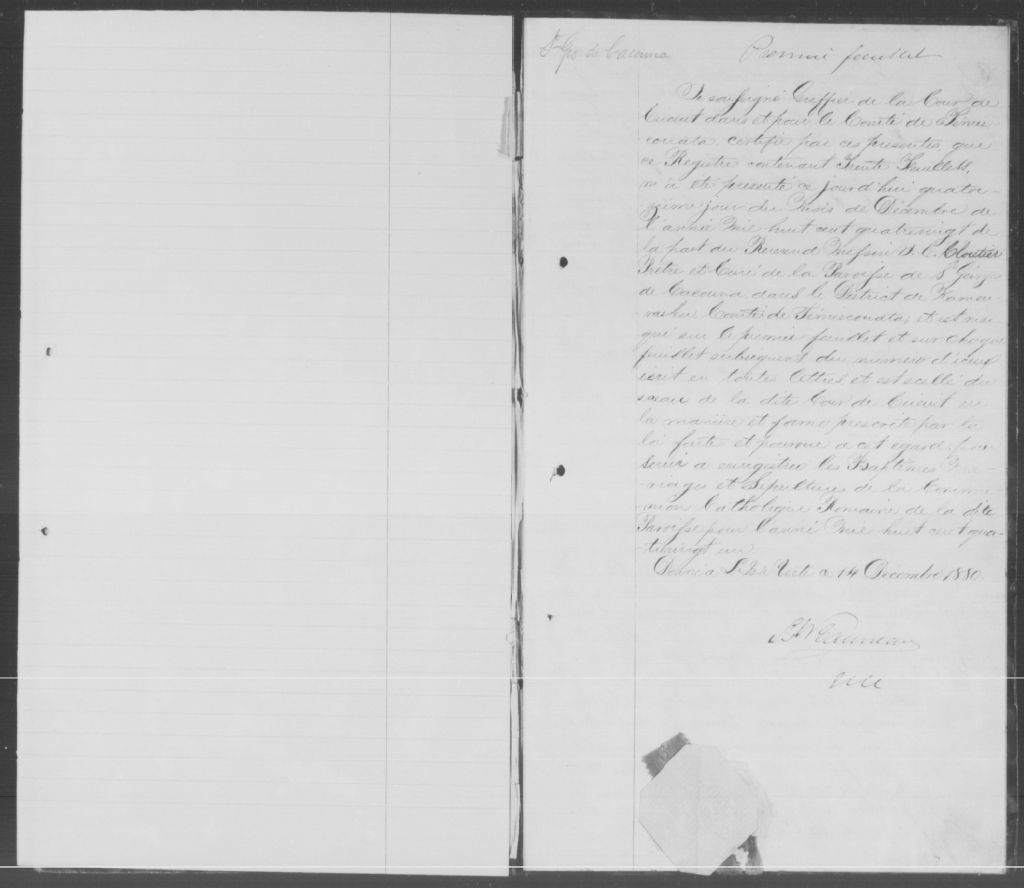 St Geo de Cacouna
Premier feuillet
Je soussigné Greffier de la Cour de
Circuit dans et pour le Comté de Témis-
couata, certifie par ces presentes, que
ce Registre contenant Trente Feuillets,
m'a été presenté ce jourd'hui quator-
zième jour du Mois de Décembre de
l'année Mil huit cent quatrevingt de
la part du Reverend Messire J. C. Cloutier
Prêtre et Curé de la Paroisse de St George
de Cacouna, dans le District de Kamou-
raska Comté de Témiscouata, et est mar-
qué sur le premier feuillet et sur chaque
feuillet subsequent du numéro d'iceux
écrit en toutes lettres, et est scellé du
sceau de la dite Cour de Circuit en
la manière et forme prescrite par la
loi faite et pourvue a cet egard, pour
servir a enregistrer les Baptêmes Ma-
riages et Sépultures de la Commu-
nion Catholique Romaine de la dite
Paroisse pour l'année Mil huit cent qua-
trevingt un
Donné a L'Isle Verte ce 14 Décembre 1880.